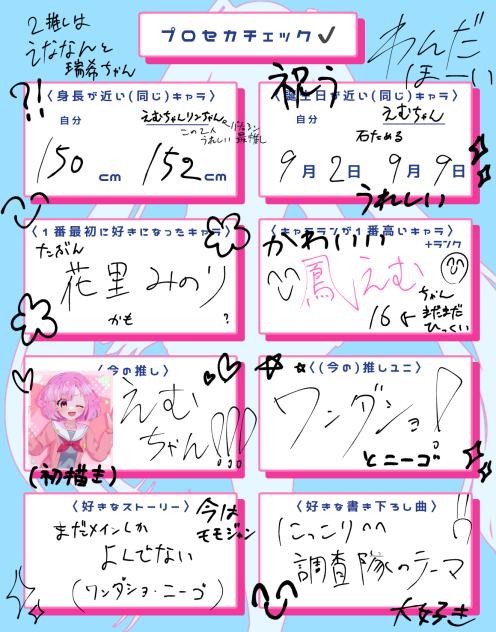 2推しは
えななんと
瑞希ちゃん
プロセカチェック✓
わんだ
ほーい
?!
〈身長が近い(同じ)キャラ〉
自分
えむちゃんリンちゃん
この2人
うれしい
最推し
150cm
152cm
祝う
〈誕生日が近い(同じ)キャラ〉
自分
えむちゃん
9月2日
9月9日
うれしい
〈1番最初に好きになったキャラ〉
たぶん
花里みのり
かも
?
〈キャラランクが1番高いキャラ〉
かわいい
+ランク
鳳えむ
ちゃん
16
まだまだ
ひっくい
〈今の推し〉
えむ
ちゃん!!!
(初描き)
〈(今の)推しユニ〉
ワンダショ!
とニーゴ
〈好きなストーリー〉
今は
モモジャン
まだメインしか
よんでない
(ワンダショ・ニーゴ)
〈好きな書き下ろし曲〉
にっこり^^
調査隊のテーマ
!!
大好き